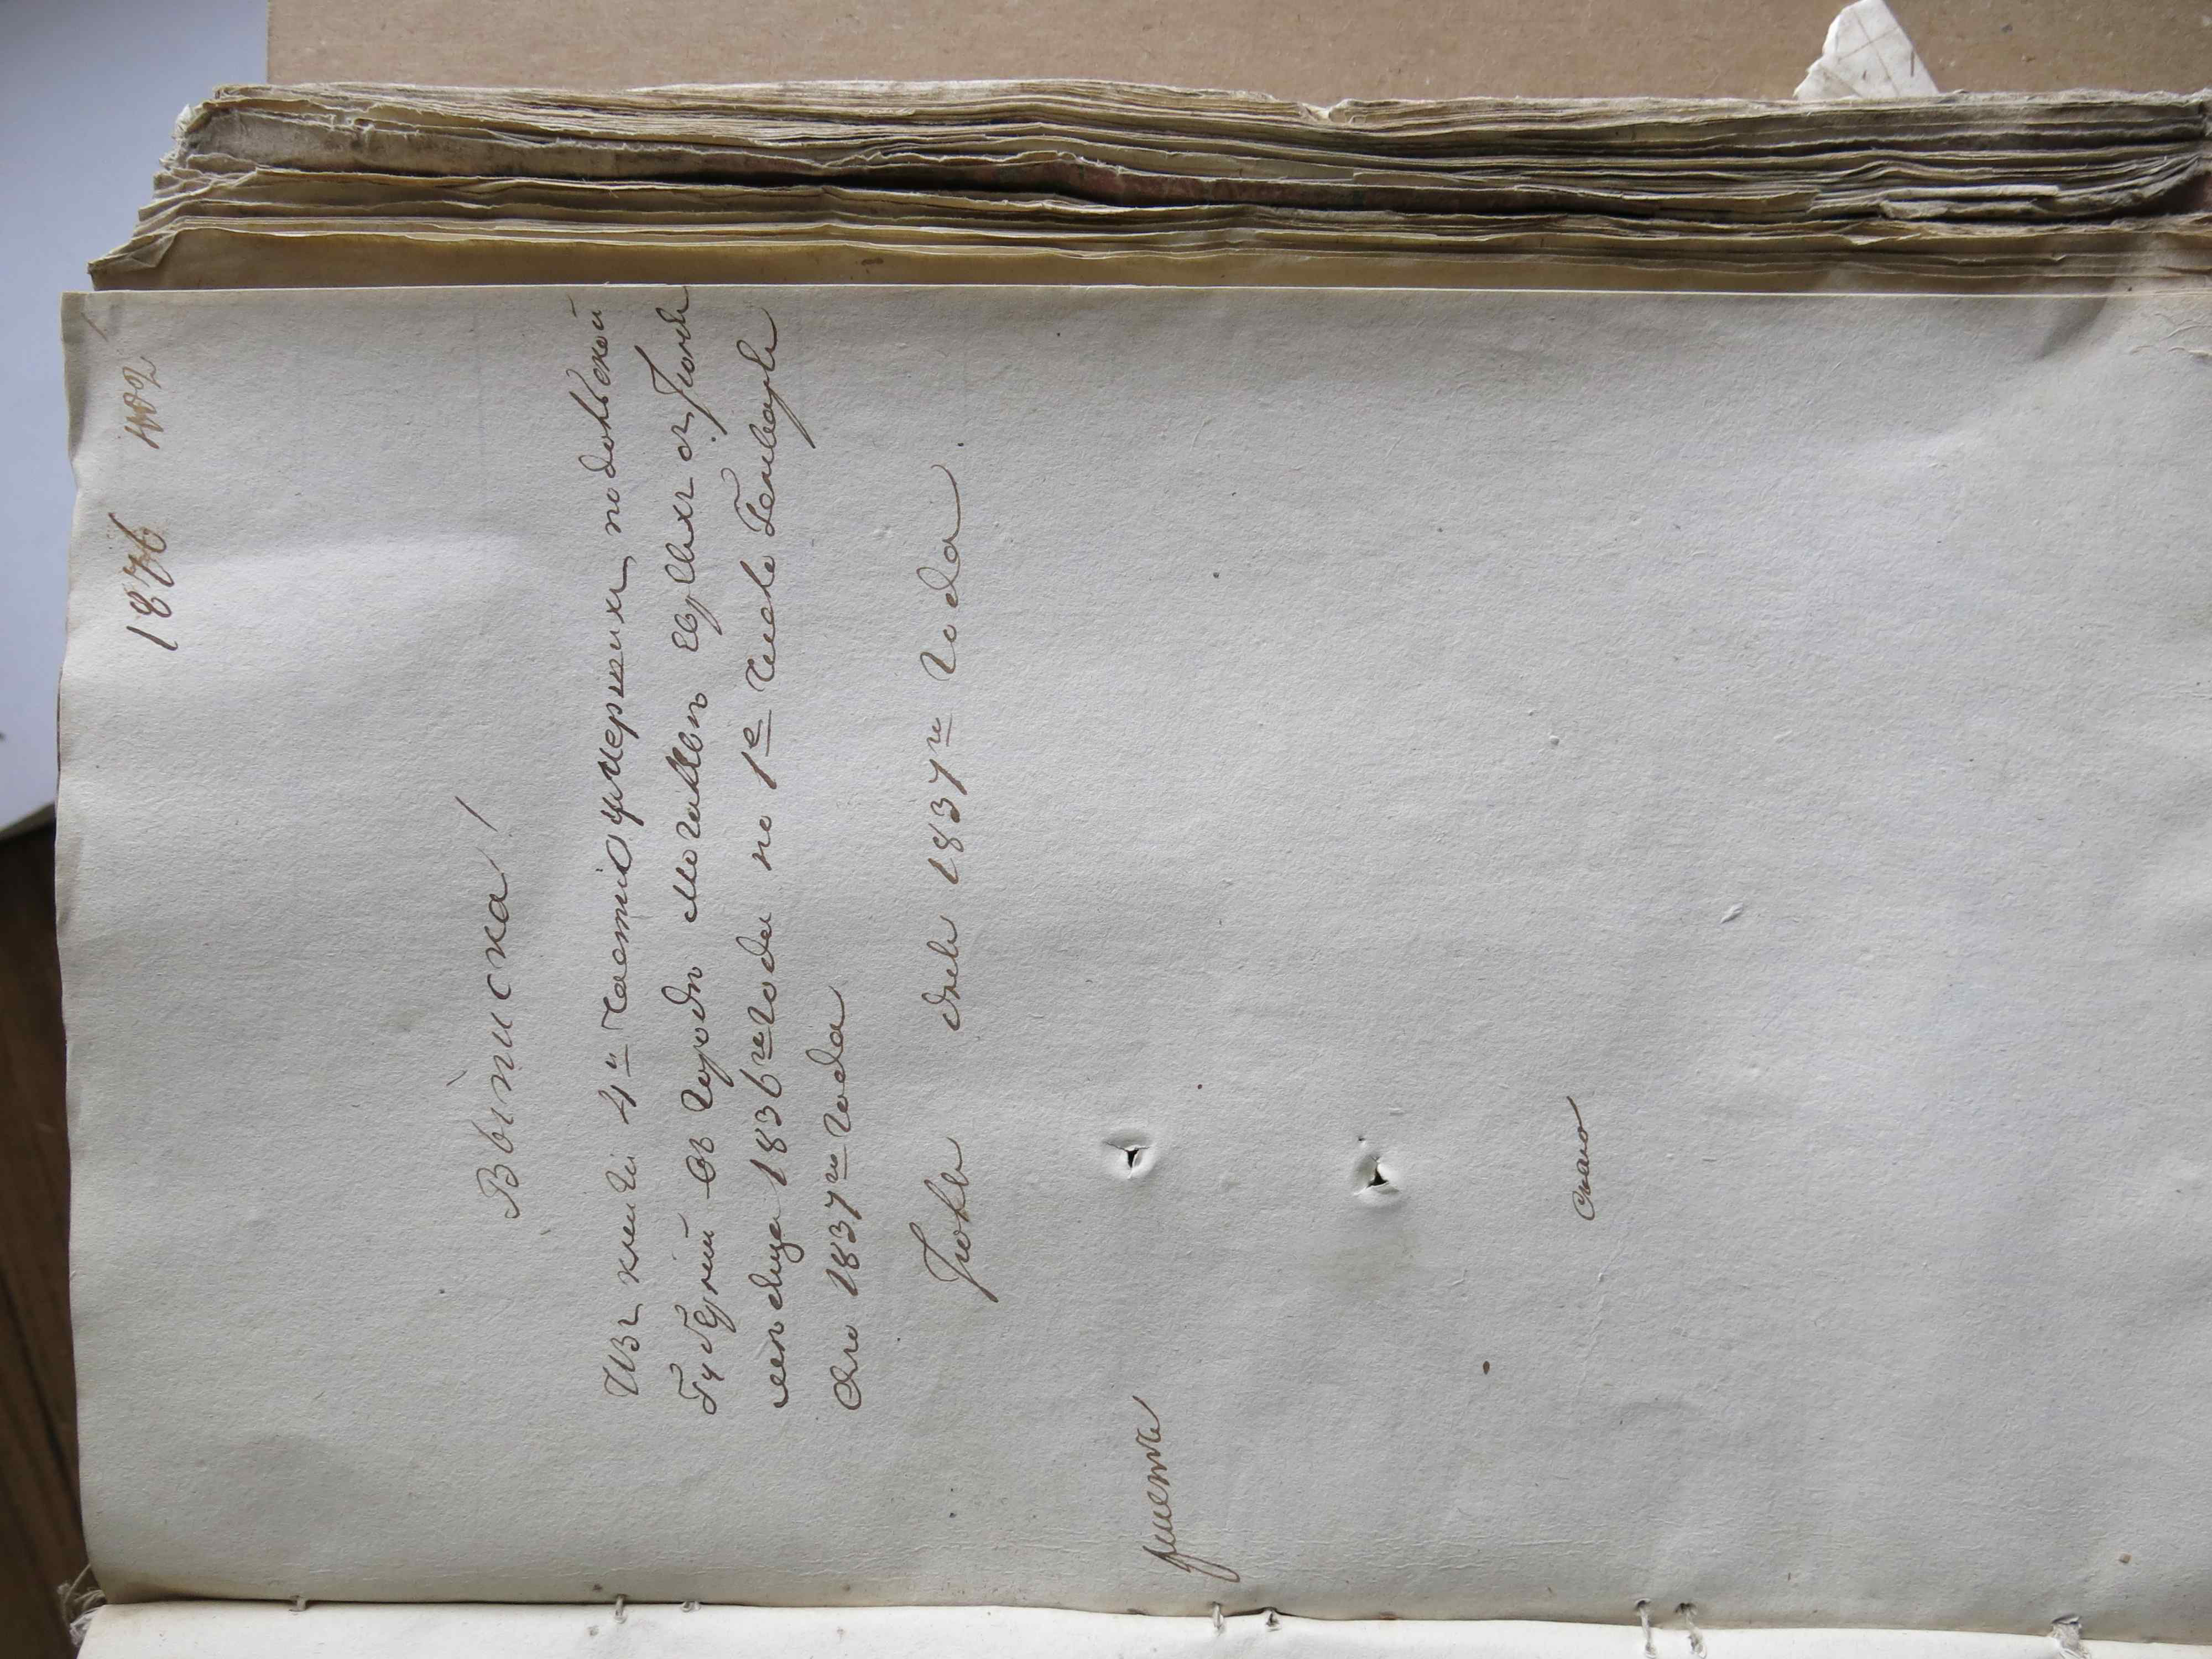 1876 402
Выписка!
Изъ книги 4й части О умершихъ подольской
Губерніи въ городѣ Могилевѣ Евреяхъ съ Іюля
мѣсяца 1836го года по 1е число Генваря
Сего 1837го года
дня 1837го года